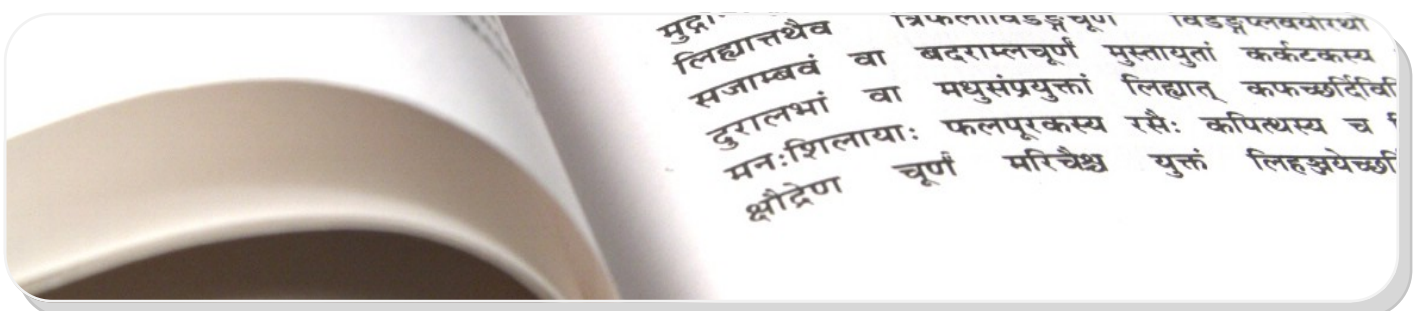 लिह्यात्तथैव त्रिफलाविडङ्गचूर्णं विडङ्गप्लवयोरथो
सजाम्बवं वा बदराम्लचूर्णं मुस्तायुतां कर्कटकस्य
दुरालभां वा मधुसंप्रयुक्तां लिह्यात् कफच्छर्दिवि
मनःशिलायाः फलपूरकस्य रसैः कपित्थस्य च
क्षौद्रेण चूर्णं मरिचैश्च युक्तं लिहञ्जयेच्छर्दि